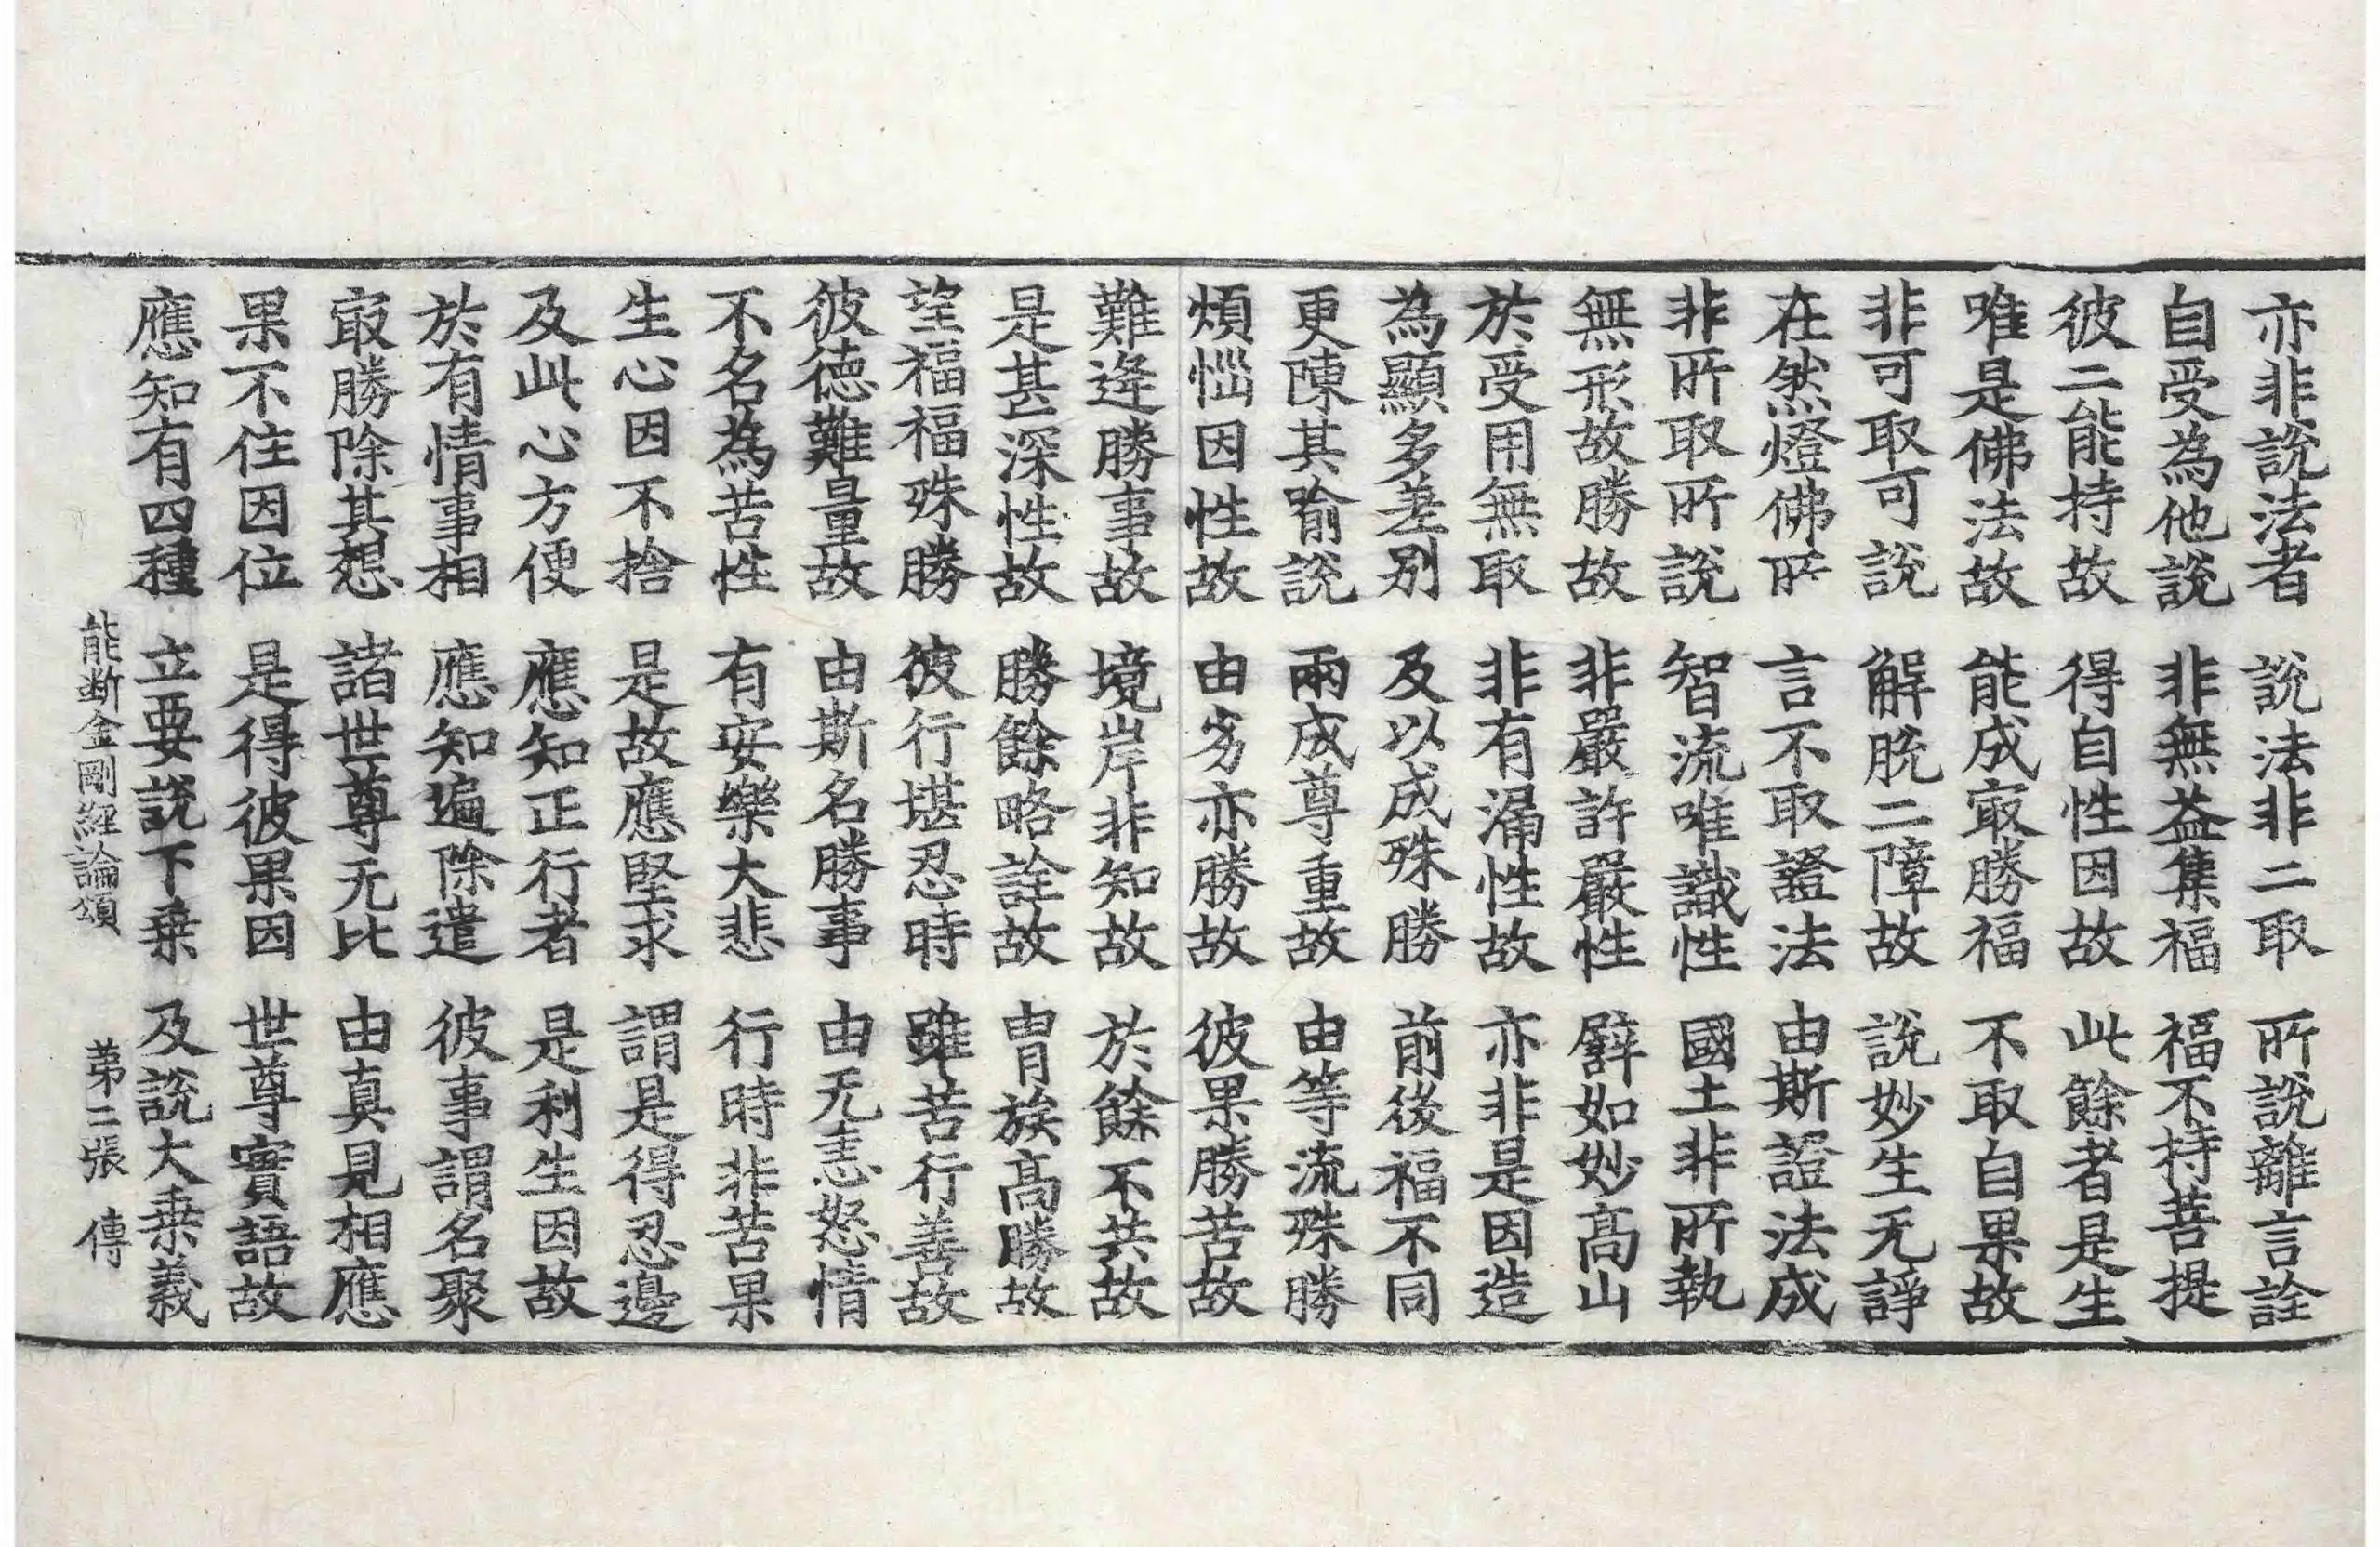 亦非說法者 說法非二取 所說離言詮
自受為他說 非無益集福 福不持菩提
彼二能持故 得自性因故 此餘者是生
唯是佛法故 能成㝡勝福 不取自果故
非可取可說 解脫二障故 說妙生无諍
在然燈佛所 言不取證法 由斯證法成
非所取所說 智流唯識性 國土非所執
無形故勝故 非嚴許嚴性 譬如妙高山
於受用無取 非有漏性故 亦非是因造
為顯多差別 及以成殊勝 前後福不同
更陳其喻說 兩成尊重故 由等流殊勝
煩惱因性故 由劣亦勝故 彼果勝苦故
難逢勝事故 境岸非知故 於餘不共故
是甚深性故 勝餘略詮故 冑族高勝故
望福福殊勝 彼行堪忍時 雖苦行善故
彼德難量故 由斯名勝事 由无恚怒情
不名為苦性 有安樂大悲 行時非苦果
生心因不捨 是故應堅求 謂是得忍邊
及此心方便 應知正行者 是利生因故
於有情事相 應知遍除遣 彼事謂名聚
㝡勝除其想 諸世尊无比 由真見相應
果不住因位 是得彼果因 世尊實語故
應知有四種 立要說下乗 及說大乗義
能断金剛經論頌 第二張 傳